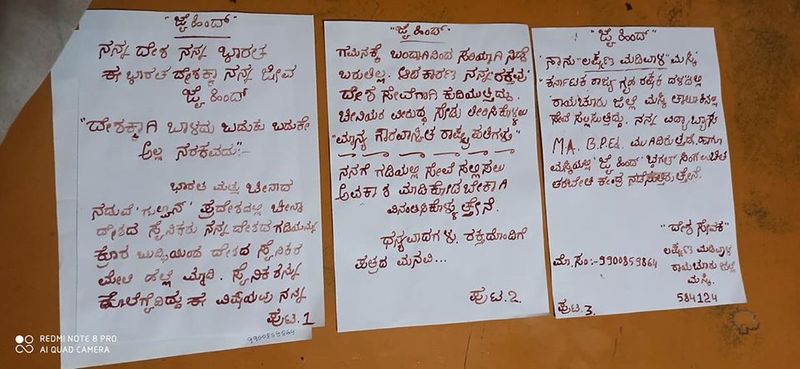 "ಜೈ ಹಿಂದ್"
ನನ್ನ ದೇಶ ನನ್ನ ಭಾರತ
ಈ ಭಾರತ ದೇಶಕ್ಕಾ ನನ್ನ ಜೀವ
ಜೈ ಹಿಂದ್
"ದೇಶಕ್ಕಾಗಿ ಬಾಳದು ಬದುಕು ಬದುಕೇ
ಅಲ್ಲ ನರಕವದು":-
ಭಾರತ ಮತ್ತು ಚೀನಾದ
ನಡುವೆ "ಗುಲ್ವಾನ್" ಪ್ರದೇಶದಲ್ಲಿ ಚೀನಾ
ದೇಶದ ಸೈನಿಕರು ನನ್ನ ದೇಶದ ಗಡಿಯನ್ನು
ಕ್ರೂರ ಬುದ್ಧಿಯಿಂದ ದೇಶದ ಸೈನಿಕರ
ಮೇಲೆ ಹಲ್ಲೆ ಮಾಡಿ. ಸೈನಿಕರನ್ನು
ಈ ವಿಷಯವು ನನ್ನ
ಪುಟ. 1
9900859864
"ಜೈ ಹಿಂದ್"
ಗಮನಕ್ಕೆ ಬಂದಾಗಿನಿಂದ ಸರಿಯಾಗಿ ನಿದ್ದೆ
ಬರುತಿಲ್ಲ. ಆದ ಕಾರಣ ನನ್ನ ರಕ್ತವು
ದೇಶ ಸೇವೆಗಾಗಿ ಕುದಿಯುತ್ತಿದ್ದು.
ಚೀನಿಯರ ವಿರುದ್ಧ ಸೇಡು ತೀರಿಸಿಕೊಳ್ಳಲು
"ಮಾನ್ಯ ಗೌರವಾನ್ವಿತ ರಾಷ್ಟ್ರಪತಿಗಳು"
ನನಗೆ ಗಡಿಯಲ್ಲಿ ಸೇವೆ ಸಲ್ಲಿಸಲು
ಅವಕಾಶ ಮಾಡಿಕೊಡ ಬೇಕಾಗಿ
ವಿನಂತಿಸಿಕೊಳ್ಳುತ್ತೇನೆ.
ಧನ್ಯವಾದಗಳು. ರಕ್ತದೊಂದಿಗೆ
ಪತ್ರದ ಮನವಿ...
ಪುಟ. 2.
"ಜೈ ಹಿಂದ್"
"ನಾನು "ಲಕ್ಷ್ಮಣ ಮಡಿವಾಳ" ಮಸ್ಕಿ
"ಕರ್ನಾಟಕ ರಾಜ್ಯ ಗೃಹ ರಕ್ಷಕ ದಳದಲ್ಲಿ
ರಾಯಚೂರು ಜಿಲ್ಲೆ ಮಸ್ಕಿ ತಾಲೂಕಿನಲ್ಲಿ
ಸೇವೆ ಸಲ್ಲಿಸುತ್ತಿದ್ದು. ನನ್ನ ವಿದ್ಯಾಭ್ಯಾಸ
M.A. B.P.Ed. ಮುಗಿದಿರುತ್ತದೆ. ಹಾಗೂ
ಮಸ್ಕಿಯಲ್ಲಿ "ಜೈ ಹಿಂದ್" ಉಚಿತ
ತರಬೇತಿ ಕೇಂದ್ರ ನಡೆಸುತ್ತಿದ್ದೇನೆ.
"ದೇಶ ಸೇವಕ"
ಲಕ್ಷ್ಮಣ ಮಡಿವಾಳ
ಮೊ.ಸಂ:-9900859864 ರಾಯಚೂರು ಜಿಲ್ಲೆ
ಮಸ್ಕಿ.
ಪುಟ. 3. 584124
REDMI NOTE 8 PRO
AI QUAD CAMERA